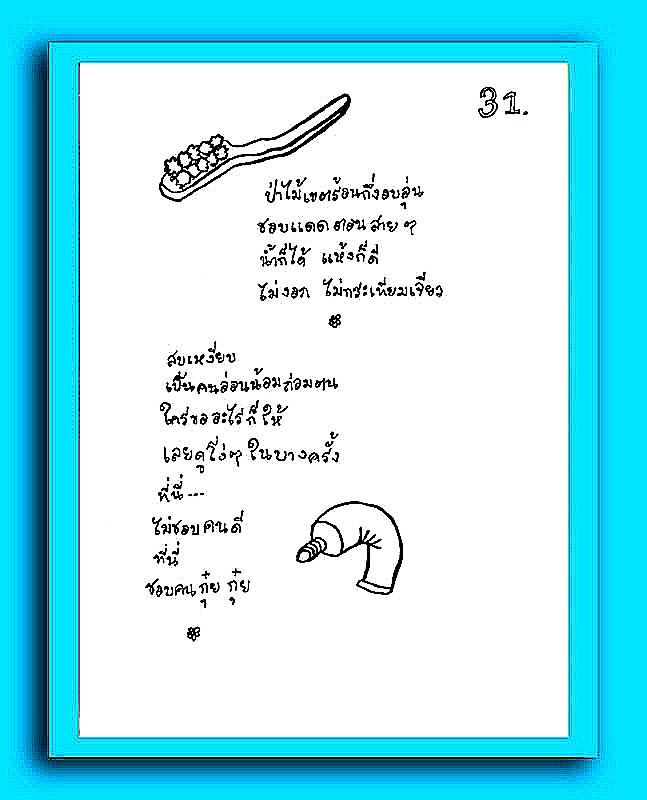 31.
ป่าไม้เขตร้อนกึ่งอบอุ่น
ชอบแดดตอนสายๆ
น้ำก็ได้ แห้งก็ดี
ไม่งอก ไม่กระเหี่ยมเจี๋ยว
สงบเงี่ยบ
เป็นคนอ่อนน้อมถ่อมตน
ใครขออะไรก็ให้
เลยดูโง่ๆ ในบางครั้ง
ที่นี่...
ไม่ชอบคนดี
ที่นี่
ชอบคนกุ๋ย กุ๋ย